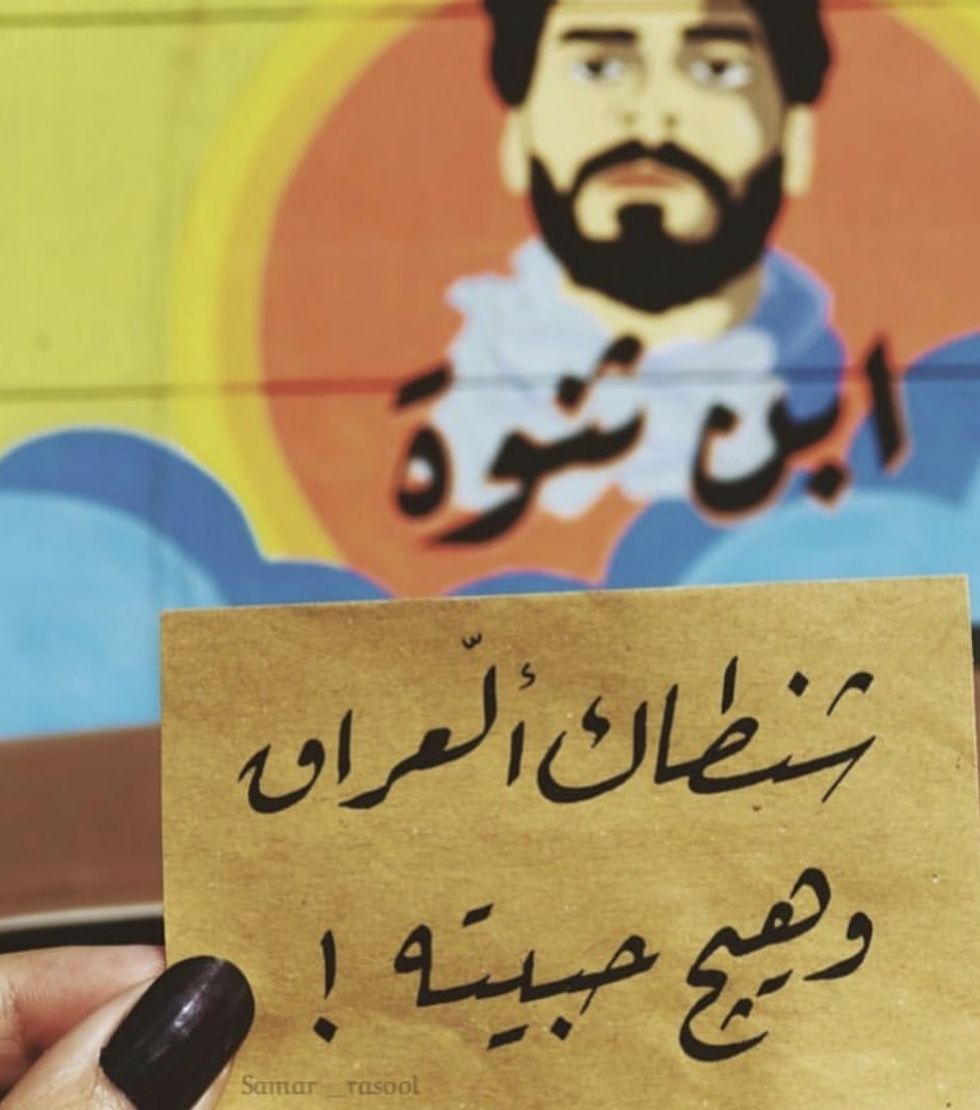 ابن ثنوة
شنطاك ألّعراق
وهيچ حبيته !
Samar _rasool